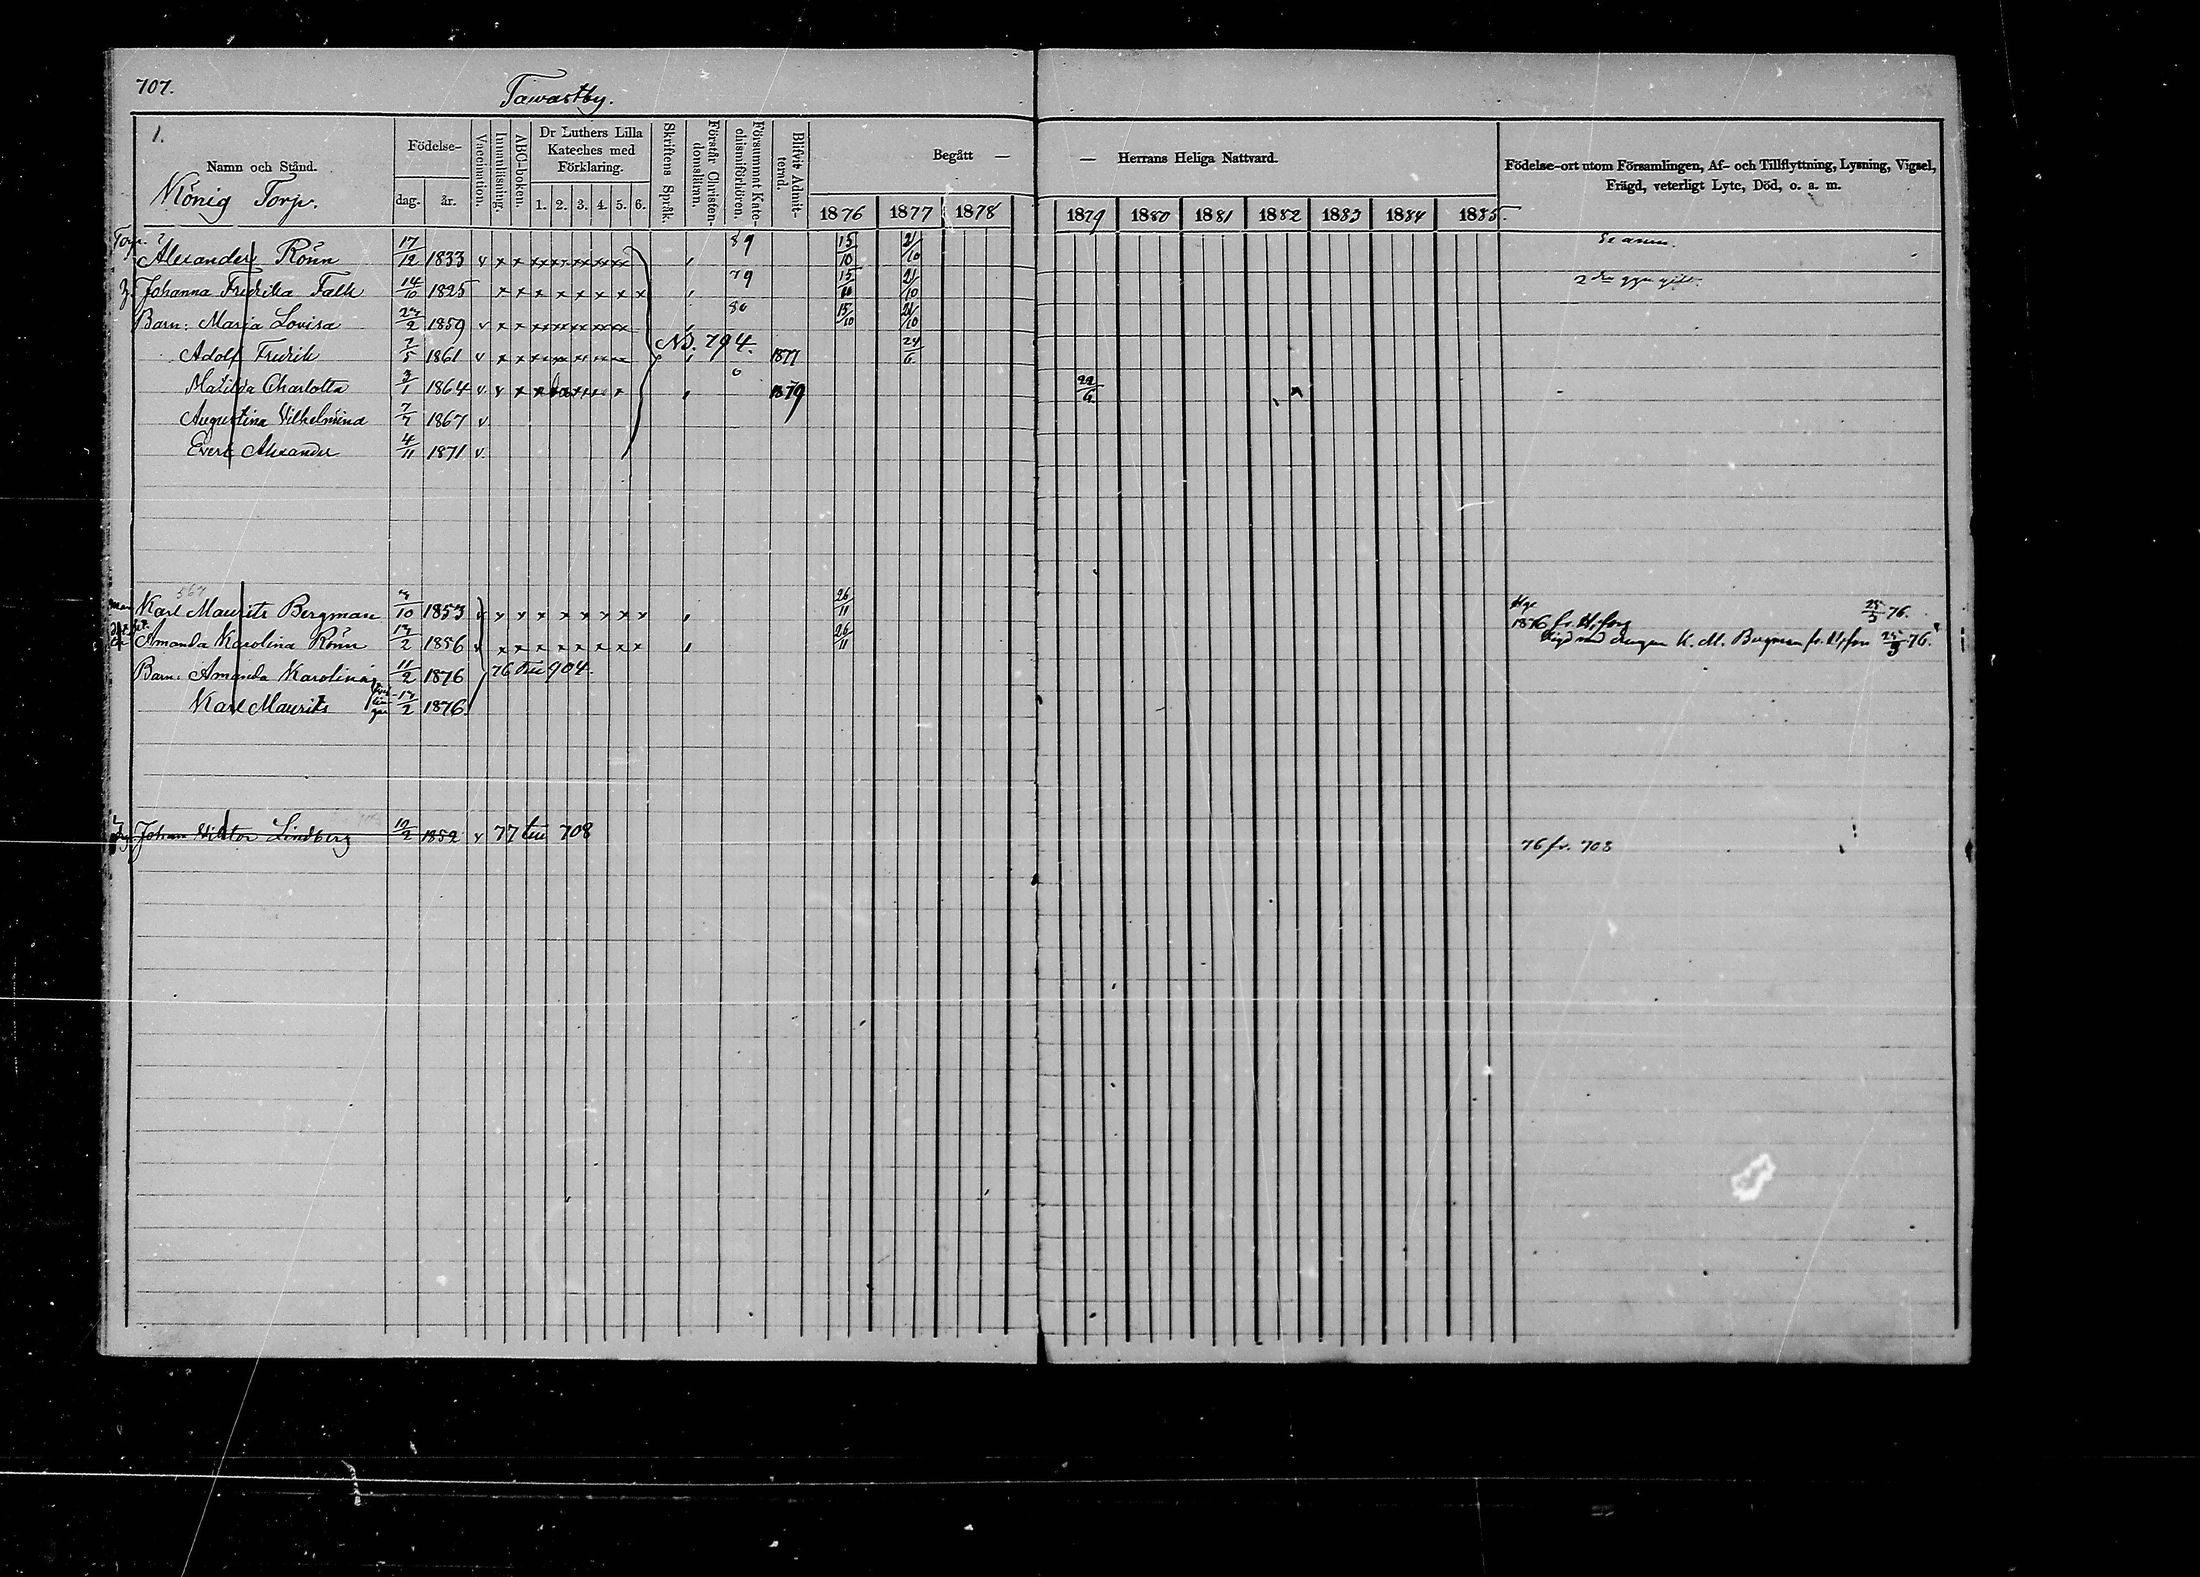 707.
Tawastby.
1.
Namn och Stånd.
Födelse-
dag. år.
Vaccination.
Innanläsning.
ABC-boken.
Dr Luthers Lilla
Kateches med
Förklaring.
1. 2. 3. 4. 5. 6.
Skriftens Språk.
Förstår Christen-
domsläran.
Försummat Kate-
chismiförhören.
Blifvit Admit-
terad.
Begått —
— Herrans Heliga Nattvard.
1876 1877 1878
1879 1880 1881 1882 1883 1884 1885.
Födelse-ort utom Församlingen, Af- och Tillflyttning, Lysning, Vigsel,
Frägd, veterligt Lyte, Död, o. a. m.
König Torp.
Torp. Alexander Rönn 17/12 1833 v x x 89 15/10 21/10
Johanna Fredrika Falk 14/10 1825 x x x x x x x x 79 15/10 21/10
Barn: Maria Lovisa 27/2 1859 v x x 80 15/10 21/10
Adolf Fredrik 7/5 1861 v x x No. 794. 1877 24/6.
Matilda Charlotta 3/1 1864 v v x 0 1879 22/6.
Augustina Vilhelmina 7/7 1867 v
Evert Alexander 4/11 1871 v
567
Karl Maurits Bergman /10 1853 v v x x x x x x x 26/11 1876 fr. H:fors 25/5 76.
Amanda Karolina Rönn 17/2 1856 v x x x x x x x x 26/11 Vigd med drengen K. M. Bergman fr. H:fors 25/5 76.
Barn: Amanda Karolina 11/2 1876 76 till 904.
Karl Maurits 17/2 1876
Johan Viktor Lindberg 10/2 1852 v 77 till 708 76 fr. 708